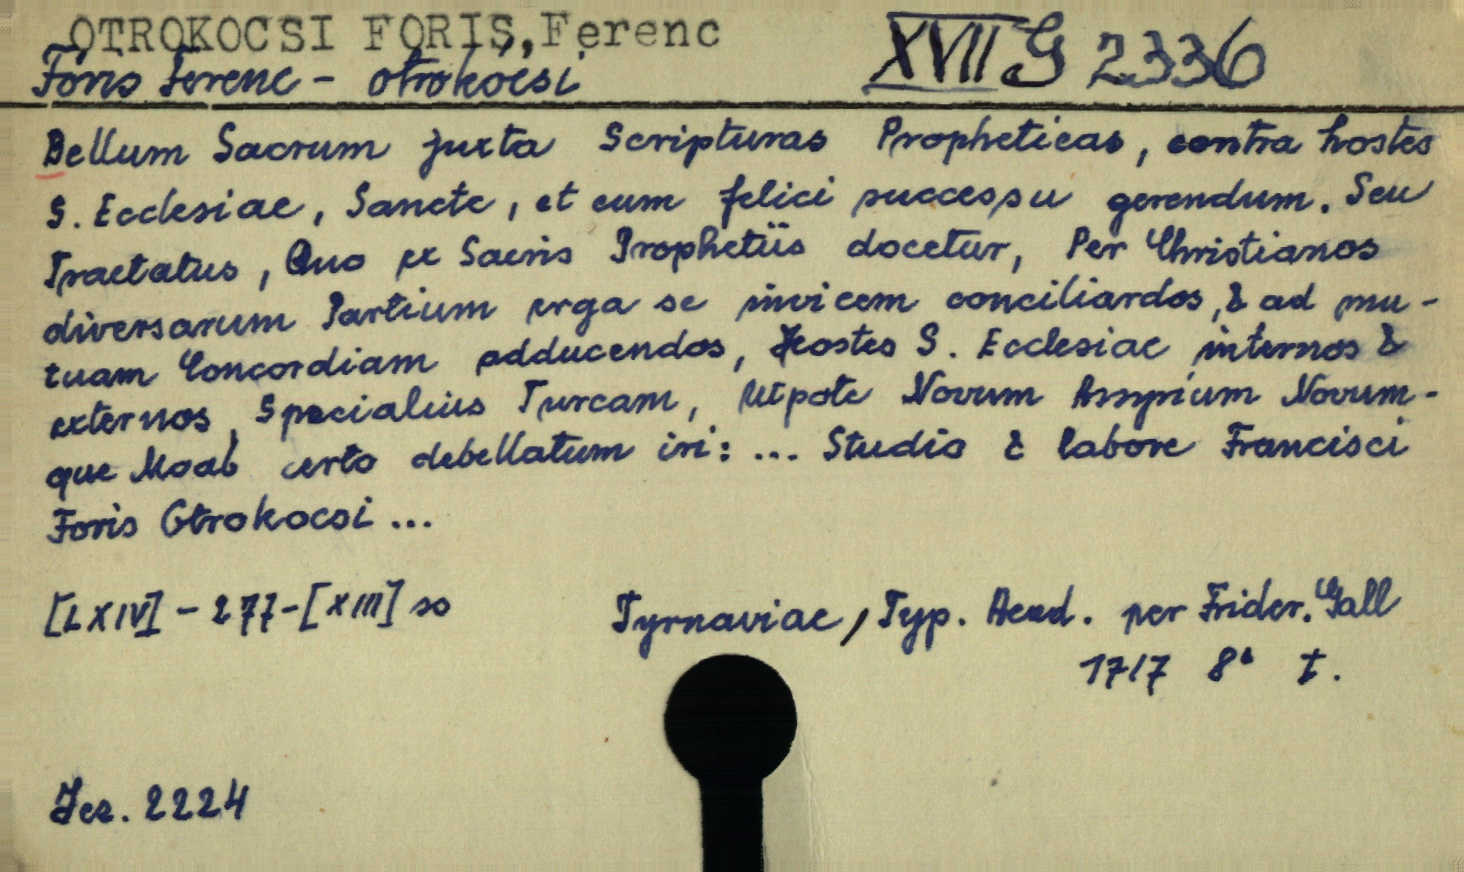 OTROKOCSI FORIS, Ferenc
XVII G 2336
Foris Ferenc - otrokócsi
Bellum Sacrum juxta Scripturas Propheticas, contra hostes
S. Ecclesiae, Sancte, et cum felici successu gerendum. Seu
Tractatus, Quo ex Sacris Prophetiis docetur, Per Christianos
diversarum Partium erga se invicem conciliardos, & ad mu-
tuam Concordiam adducendos, Hostes S. Ecclesiae internos &
externos, Specialius Turcam, Utpote Novum Assyrium Novum-
que Moab certo debellatum iri: ... Studio & labore Francisci
Foris Otrokocsi ...
[LXIV] - 277 - [XIII] so
Tyrnaviae, Typ. Acad. per Frider. Gall
1717 8° t.
Jes. 2224